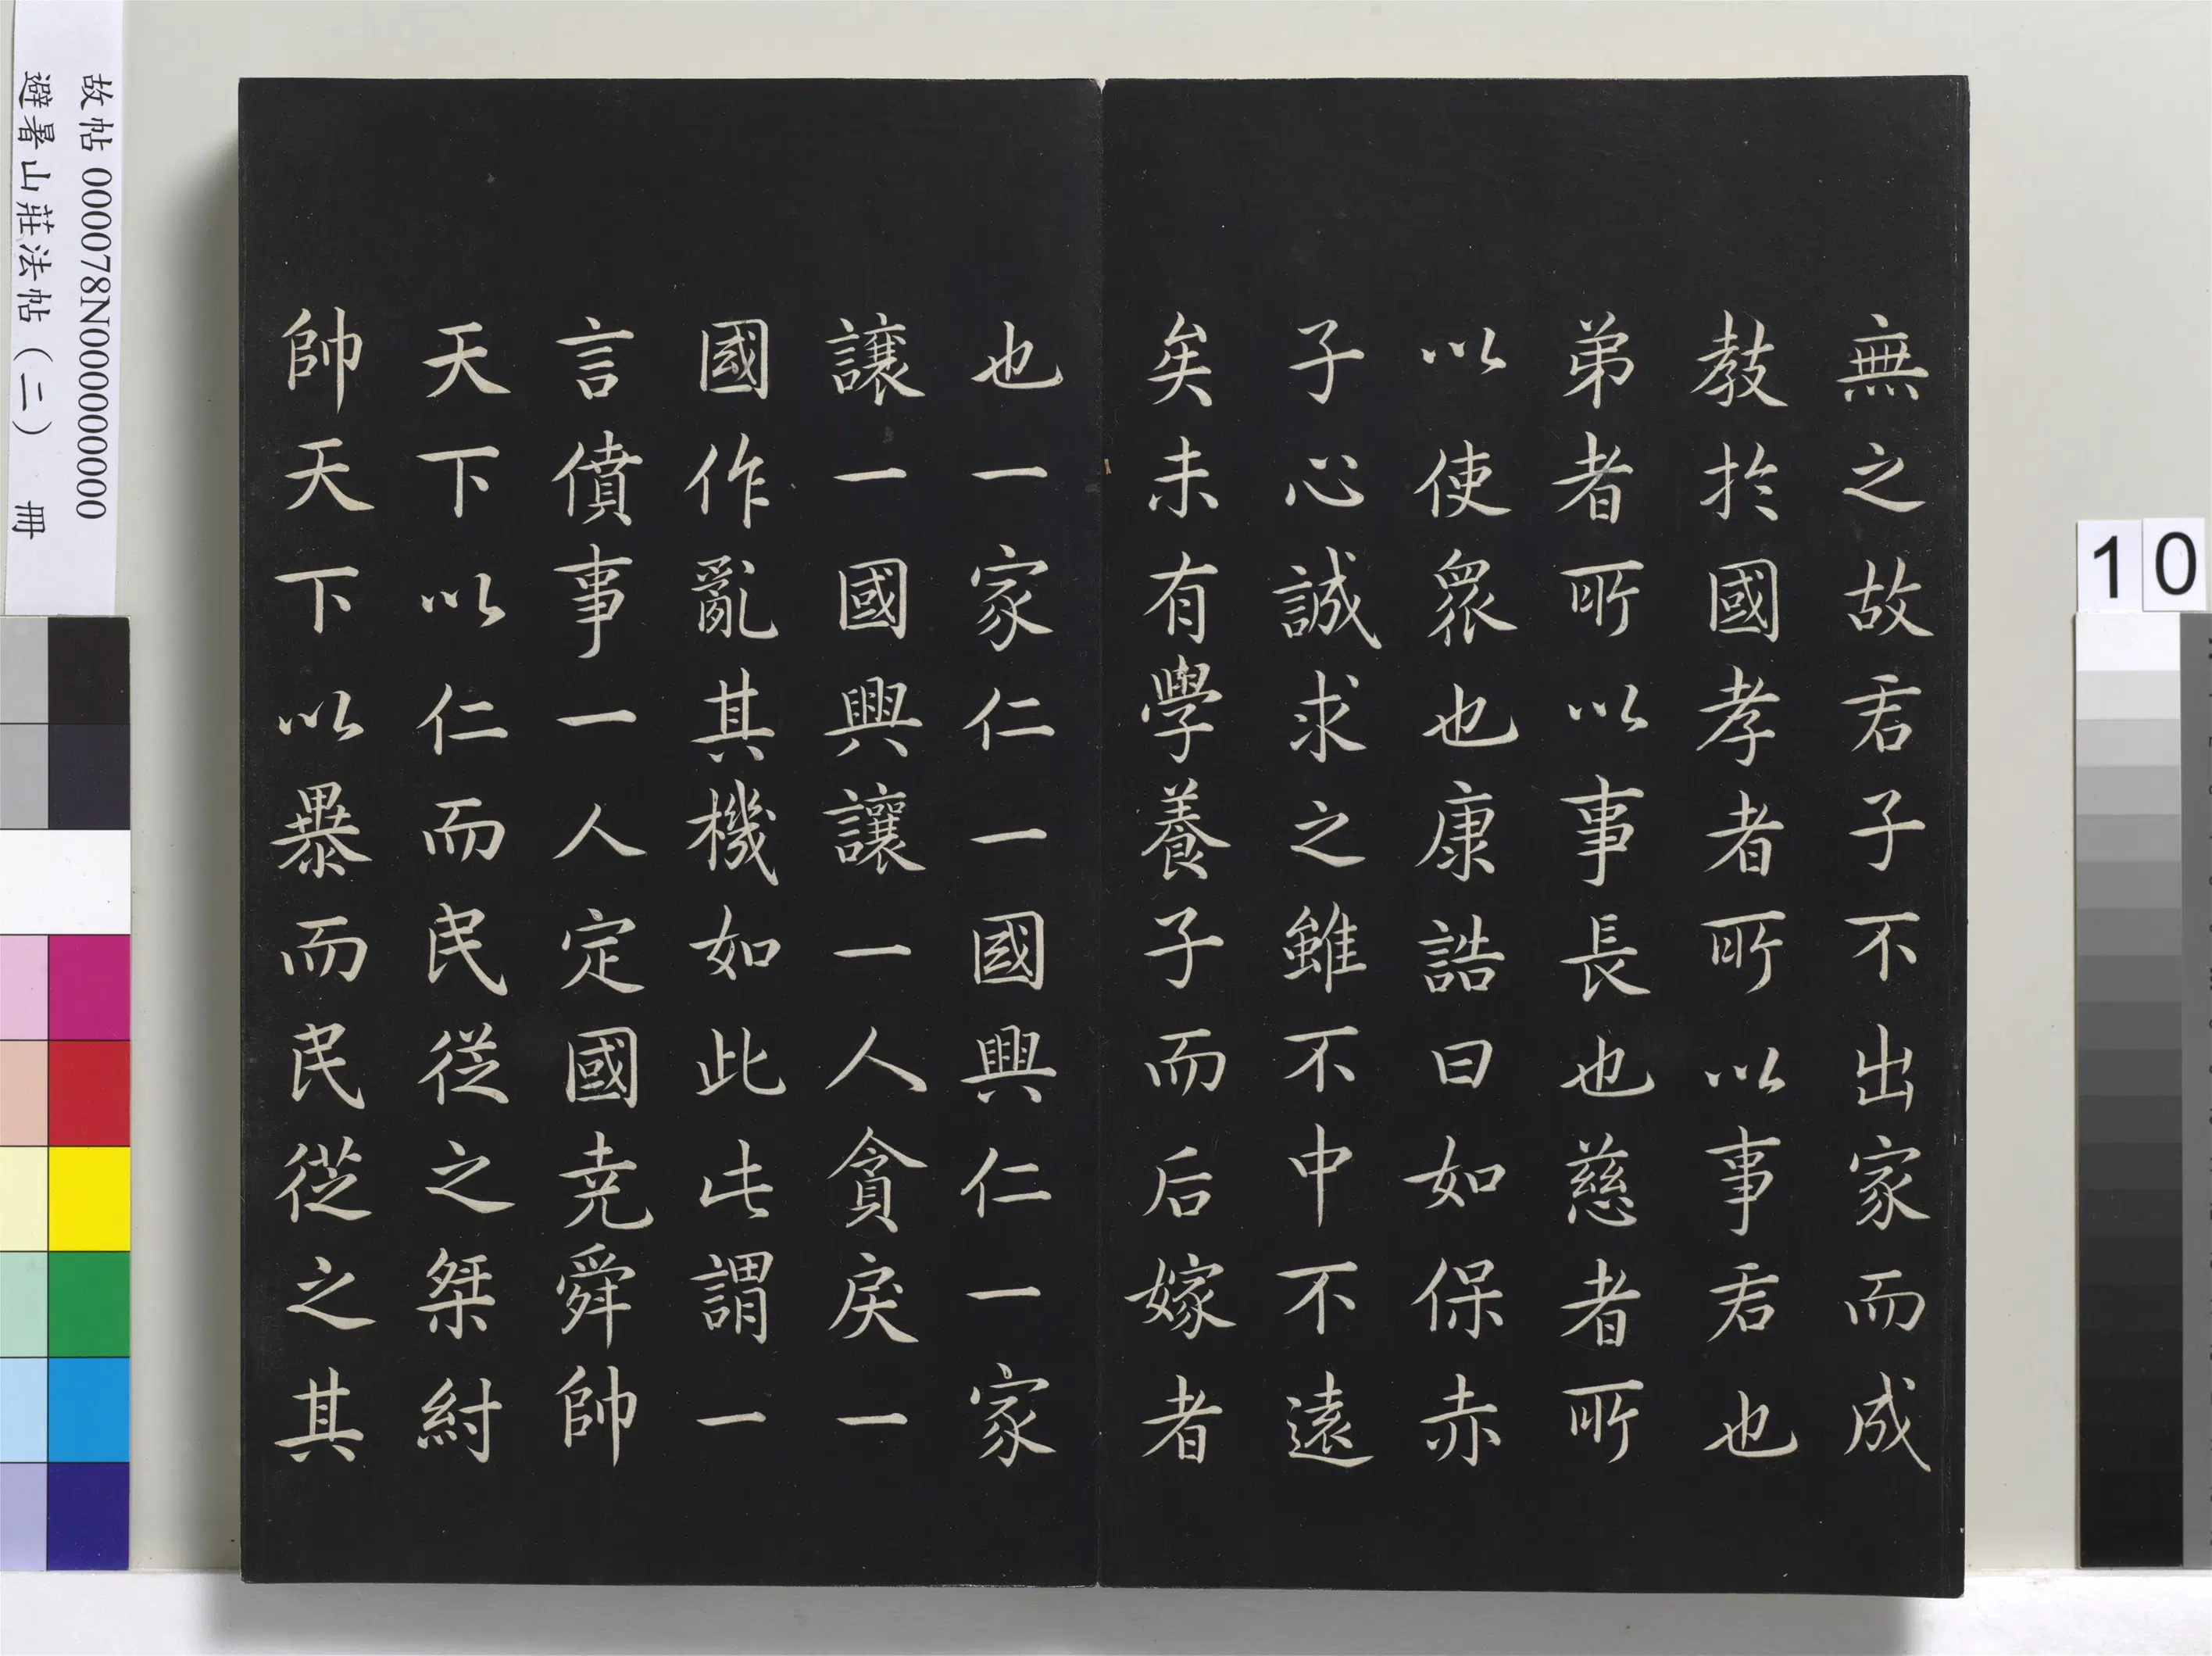 無之故君子不出家而成
教於國孝者所以事君也
弟者所以事長也慈者所
以使衆也康誥曰如保赤
子心誠求之雖不中不遠
矣未有學養子而后嫁者
也一家仁一國興仁一家
讓一國興讓一人貪戾一
國作亂其機如此此謂一
言僨事一人定國尭舜帥
天下以仁而民從之桀紂
帥天下以暴而民從之其
故帖 000078N000000000
避暑山莊法帖（二） 冊
10